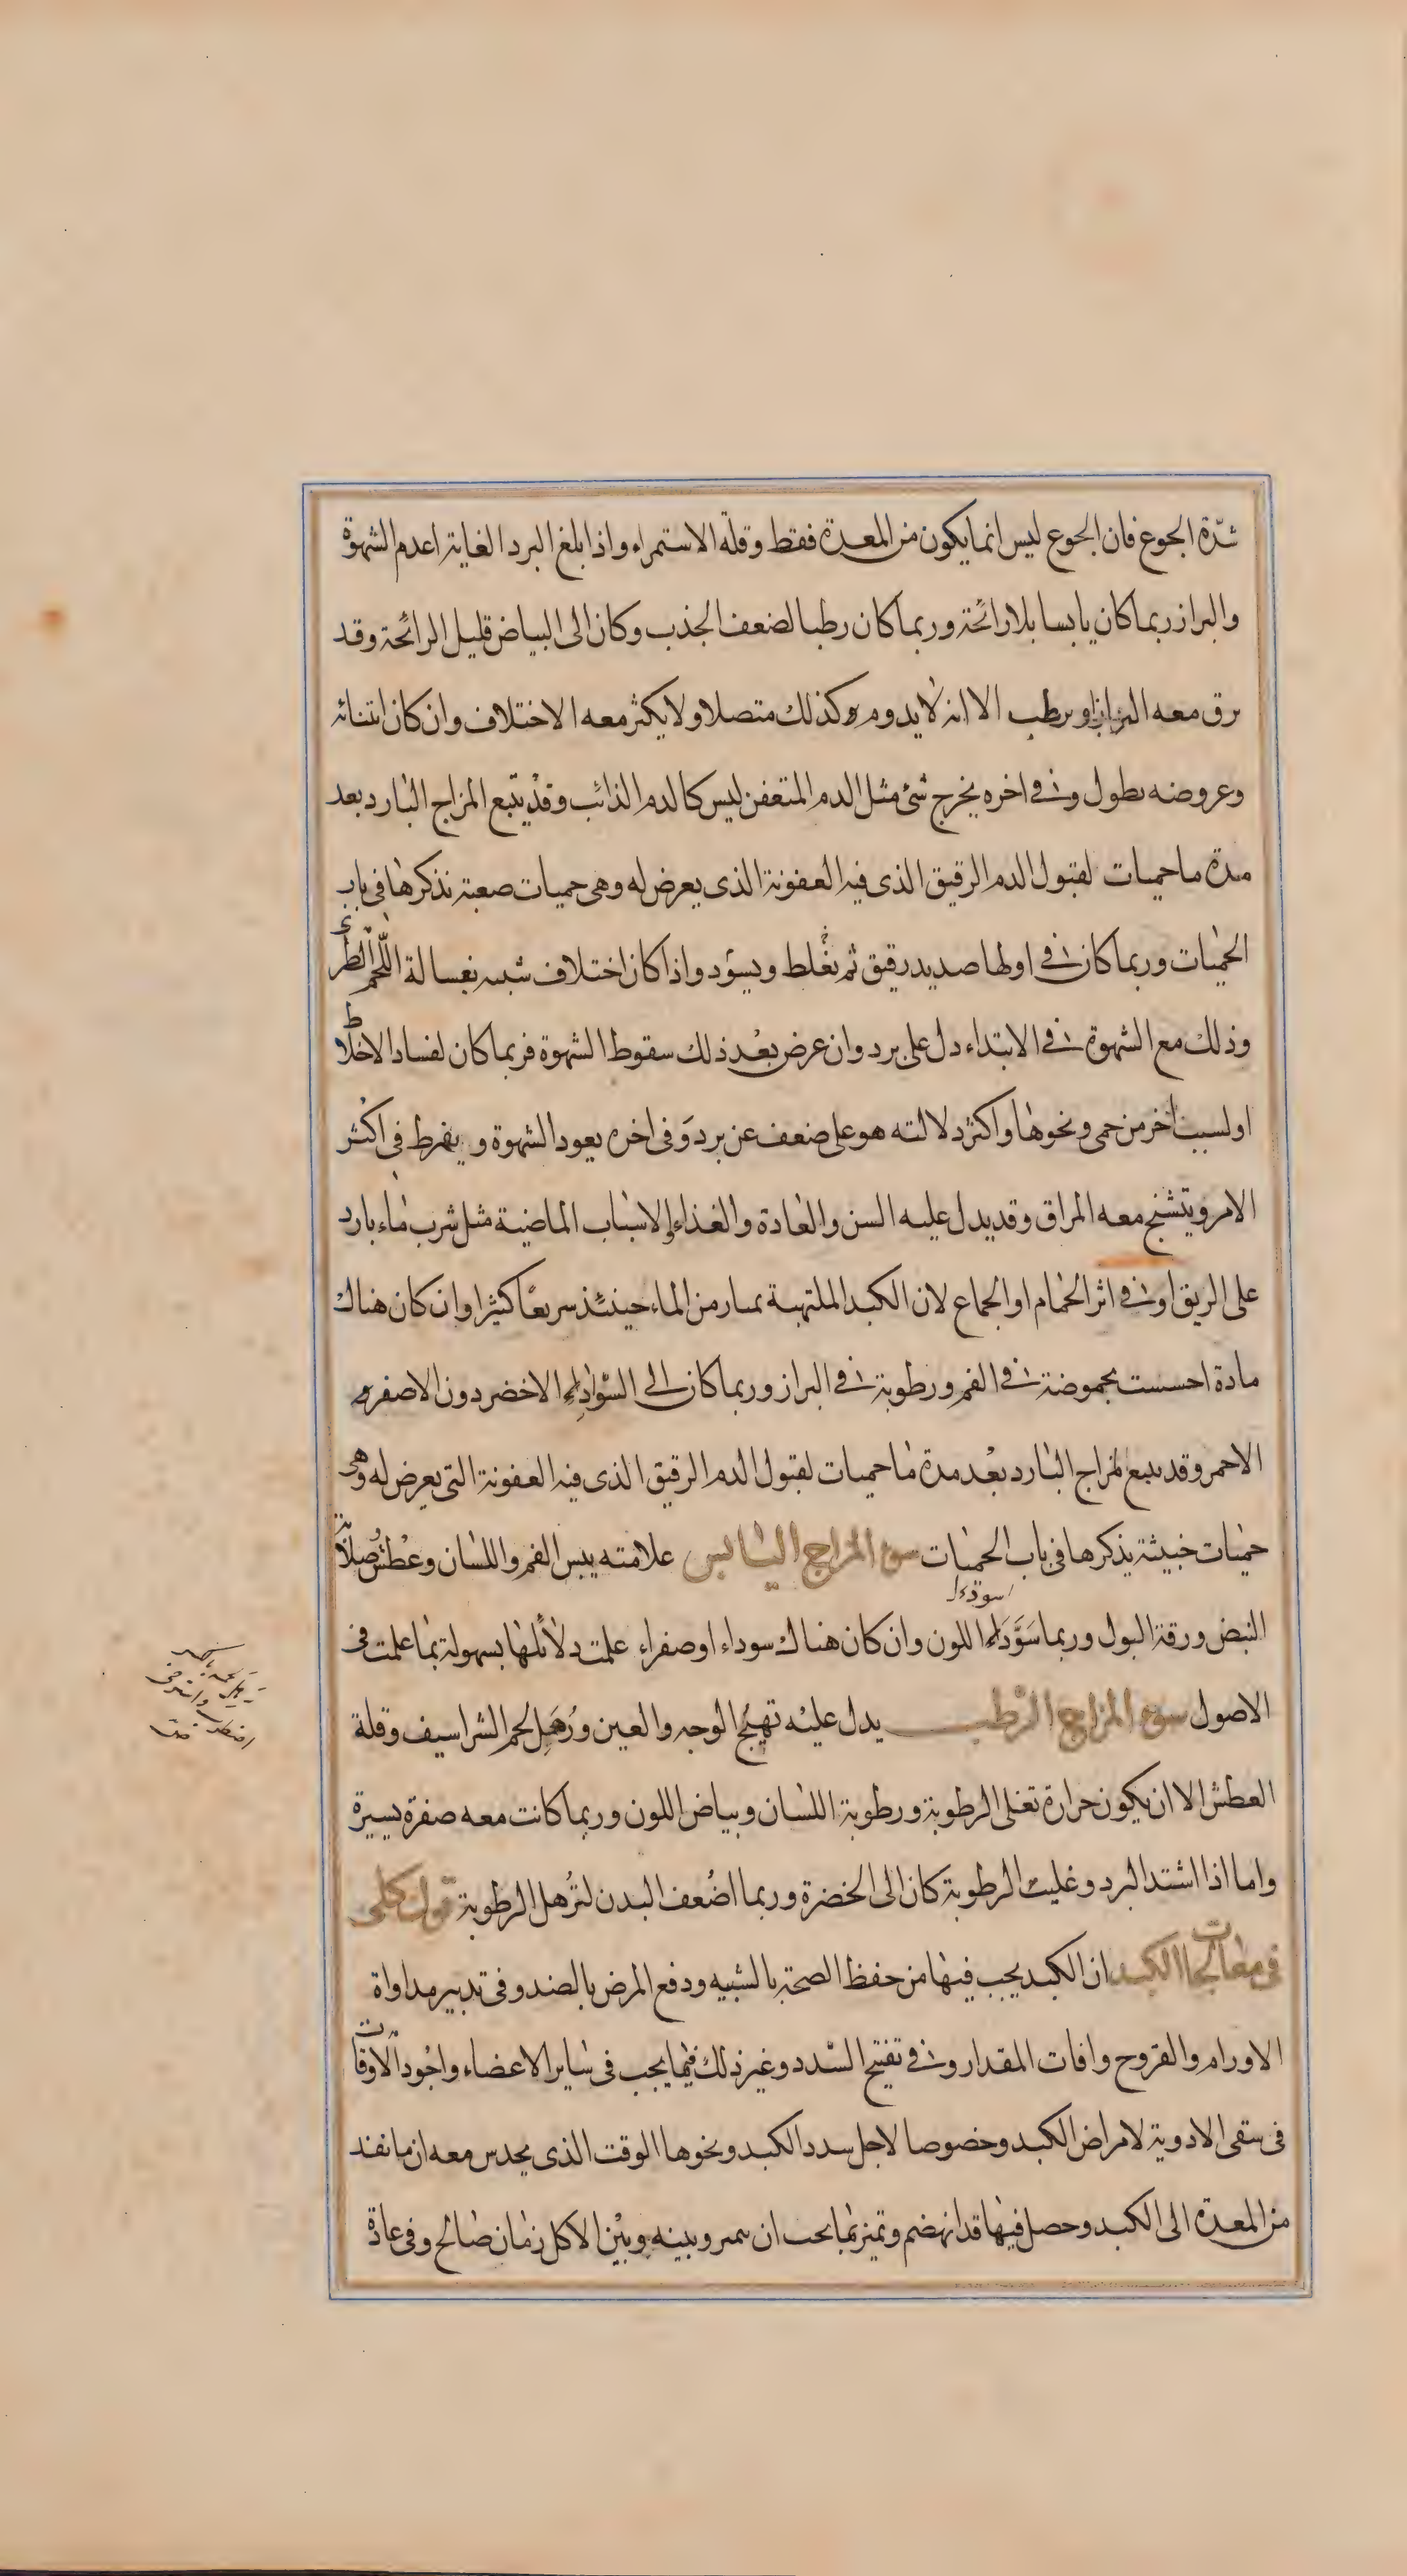 شدّة الجوع فان الجوع ليس انما يكون من المعدة فقط وقلة الاستمراء واذا بلغ البرد الغاية اعدم الشهوة
والبراز ربما كان يابسا بلا رائحة وربما كان رطبا لضعف الجذب وكان الى البياض قليل الرائحة وقد
يرق معه البراز او يرطب الا انه لا يدوم كذلك متصلا ولا يكثر معه الاختلاف وان كان انتنائه
وعروضه يطول وفى اخره يخرج شئ مثل الدم المتعفن ليس كالدم الذائب وقد يتبع المزاج البارد بعد
مدة ما حميات لقبول الدم الرقيق الذى فيه العفونة الذى يعرض له وهى حميات صعبة نذكرها فى باب
الحميات وربما كان فى اولها صديد رقيق ثم يغلط ويسود واذا كان اختلاف شبيه بغسالة اللحم الطرئ
وذلك مع الشهوة فى الابتداء دل على برد وان عرض بعد ذلك سقوط الشهوة فربما كان لفساد الاخلاط
او لسبب آخر من حمى ونحوها واكثر دلالته هو على ضعف عن برد وفى اخره يعود الشهوة ويفرط فى اكثر
الامر ويتشنج معه المراق وقد يدل عليه السن والعادة والغذاء والاسباب الماضية مثل شرب ماء بارد
على الريق او فى اثر الحمام او الجماع لان الكبد الملتهبة يمتار من الماء حينئذ سريعًا كثيرا وان كان هناك
مادة احسست بحموضة فى الفم ورطوبة فى البراز وربما كان الى السواد الاخضر دون الاصفر و
الاحمر وقد يتبع المزاج البارد بعد مدة ما حميات لقبول الدم الرقيق الذى فيه العفونة التى يعرض له وهى
حميات خبيثة يذكرها فى باب الحميات سوء المزاج اليابس علامته يبس الفم واللسان وعطش وصلابة
النبض ورقة البول وربما سَوَّدَ اللون وان كان هناك سوداء او صفراء علمت دلائلها بسهولة بما علمت فى
الاصول سوء المزاج الرطب يدل عليه تهيّج الوجه والعين ورَهَل لحم الشراسيف وقلة
العطش الا ان يكون حرارة تغلى الرطوبة ورطوبة اللسان وبياض اللون وربما كانت معه صفرة يسيرة
واما اذا اشتد البرد وغلبت الرطوبة كان الى الخضرة وربما اضعف البدن لترهل الرطوبة قول كلى
فى معالجات الكبد ان الكبد يجب فيها من حفظ الصحة بالشبيه ودفع المرض بالضد وفى تدبير مداواة
الاورام والقروح وافات المقدار وفى تفتيح السدد وغير ذلك فيما يجب فى ساير الاعضاء واجود الاوقات
فى سقى الادوية لامراض الكبد وخصوصا لاجل سدد الكبد ونحوها الوقت الذى يحدس معه ان ما نفذ
من المعدة الى الكبد وحصل فيها قد انهضم وتميز ما يجب ان يتميز وبينه وبين الاكل زمان صالح وفى عادة